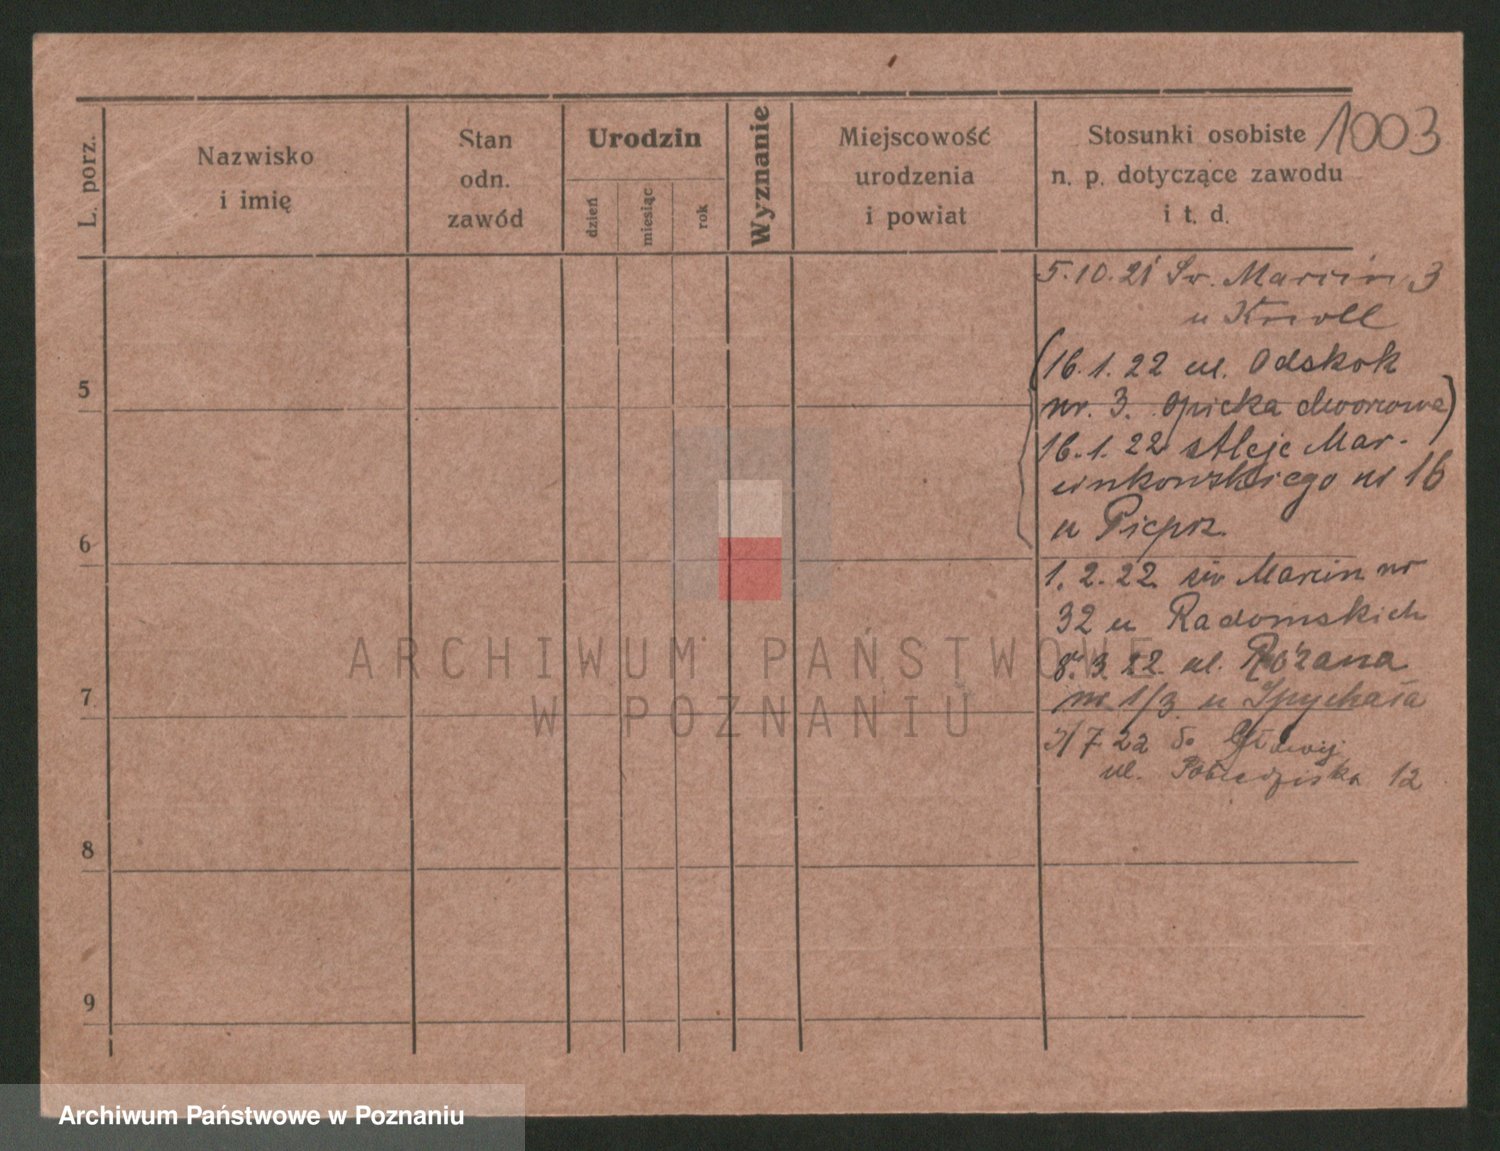 1003
L. porz.
Nazwisko
i imię
Stan
odn.
zawód
Urodzin
dzień
miesiąc
rok
Wyznanie
Miejscowość
urodzenia
i powiat
Stosunki osobiste
n. p. dotyczące zawodu
i t. d.
5.10.21 Św. Marcin 3
u Knoll
(16.1.22 ul. Odskok
nr. 3. Opieka dworcowa)
16.1.22 Aleje Mar-
cinkowskiego nr 16
u Pieprz.
1.2.22 św Marcin nr
32 u Radomskich
8.3.22 ul. Różana
nr 1/3 u Spychała
7 22
ul. 12
5
6
7
8
9
ARCHIWUM PAŃSTWOWE
W POZNANIU
Archiwum Państwowe w Poznaniu